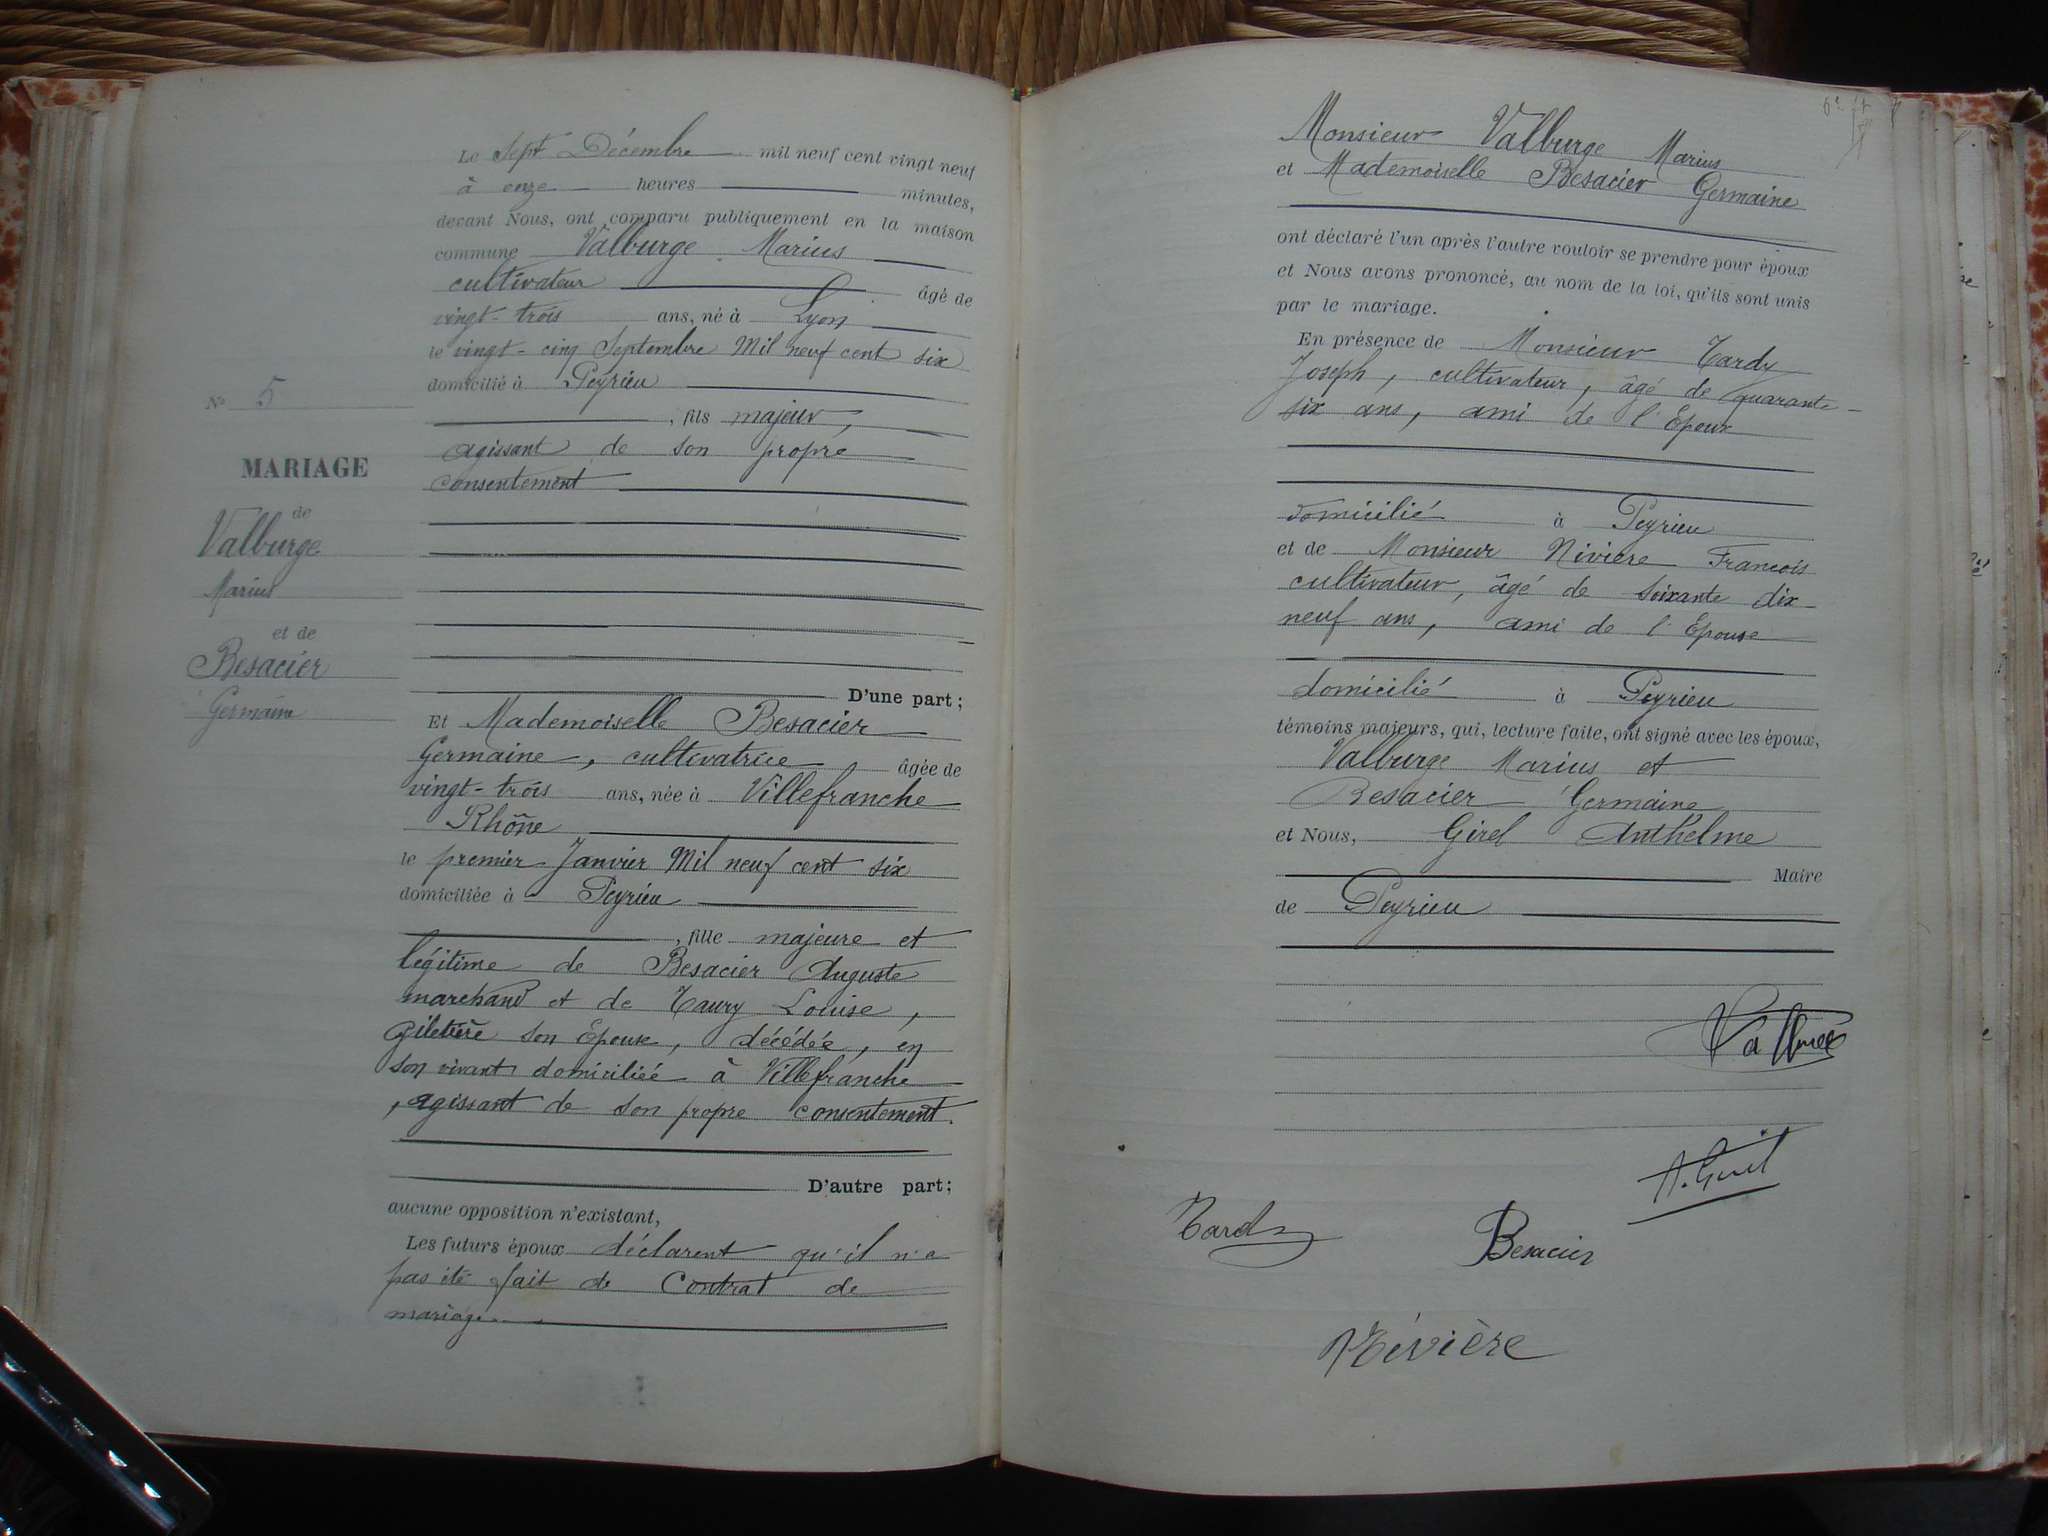 Le Sept Décembre mil neuf cent vingt neuf
à onze heures minutes,
devant Nous, ont comparu publiquement en la maison
commune Valburge Marius
cultivateur âgé de
vingt-trois ans, né à Lyon
le vingt-cinq Septembre Mil neuf cent six
domicilié à Peyrieu
, fils majeur,
agissant de son propre
consentement
No 5
MARIAGE
de
Valburge
Marius
et de
Besacier
Germaine
D'une part;
Et Mademoiselle Besacier
Germaine, cultivatrice âgée de
vingt-trois ans, née à Villefranche
Rhône
le premier Janvier Mil neuf cent six
domiciliée à Peyrieu
, fille majeure et
légitime de Besacier Auguste
marchand et de Taury Louise,
giletière son Epouse, décédée, en
son vivant domiciliée à Villefranche
, agissant de son propre consentement.
D'autre part;
aucune opposition n'existant,
Les futurs époux déclarent qu'il n'a
pas été fait de Contrat de
mariage.
Monsieur Valburge Marius
et Mademoiselle Besacier Germaine
ont déclaré l'un après l'autre vouloir se prendre pour époux
et Nous avons prononcé, au nom de la loi, qu'ils sont unis
par le mariage.
En présence de Monsieur Tardy
Joseph, cultivateur, âgé de quarante-
six ans, ami de l'Epoux
domicilié à Peyrieu
et de Monsieur Nivière François
cultivateur, âgé de soixante dix
neuf ans, ami de l'Epouse
domicilié à Peyrieu
témoins majeurs, qui, lecture faite, ont signé avec les époux,
Valburge Marius et
Besacier Germaine
et Nous, Girel Anthelme
Maire
de Peyrieu
A. Girel
Tardy
Besacier
Nivière